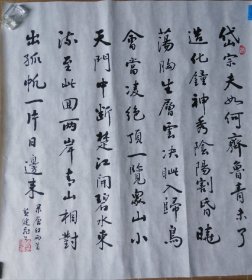 岱宗夫如何齊魯青未了
造化鐘神秀陰陽割昏曉
蕩胸生層雲决眦入歸鳥
會當凌絕頂一覽衆山小
天門中斷楚江開碧水東
流至此回兩岸青山相對
出孤帆一片日邊來